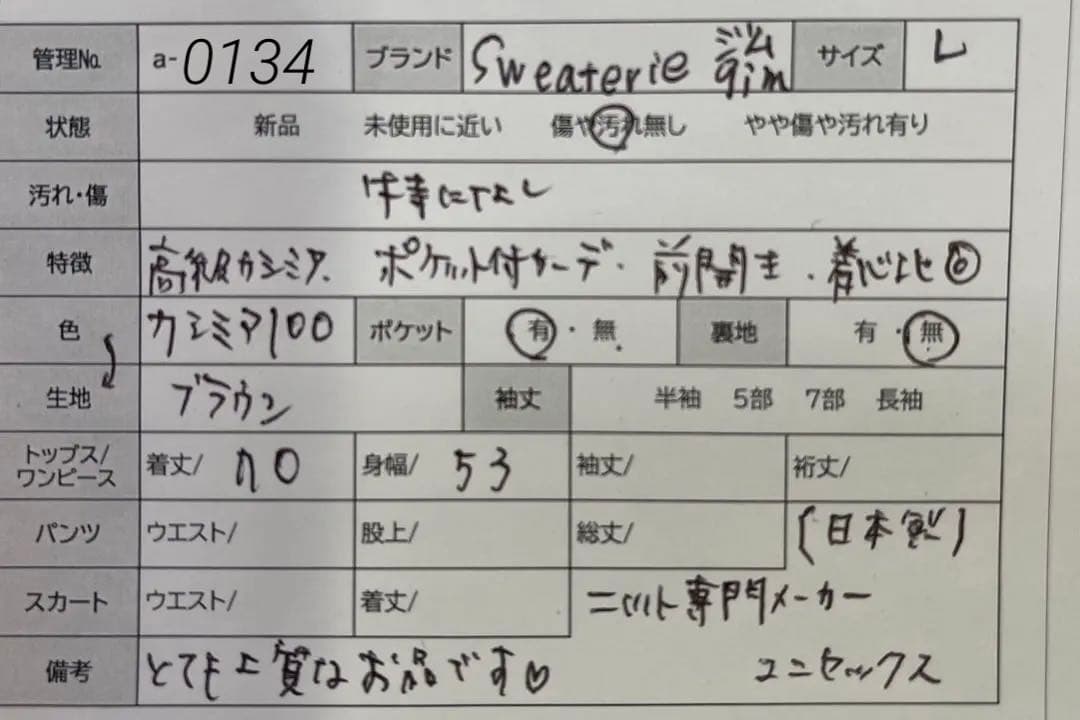 管理No. a-0134 ブランド Sweaterie ジム gim サイズ L
状態 新品 未使用に近い 傷や汚れ無し やや傷や汚れ有り
汚れ・傷 特になし
特徴 高級カシミア. ポケット付カーデ. 前開き. 着心地◎
色 カシミア100 ポケット 有・無 裏地 有・無
生地 ブラウン 袖丈 半袖 5部 7部 長袖
トップス/ワンピース 着丈/ 70 身幅/ 53 袖丈/ 裄丈/
パンツ ウエスト/ 股上/ 総丈/ (日本製)
スカート ウエスト/ 着丈/ ニット専門メーカー
備考 とても上質なお品です♡ ユニセックス